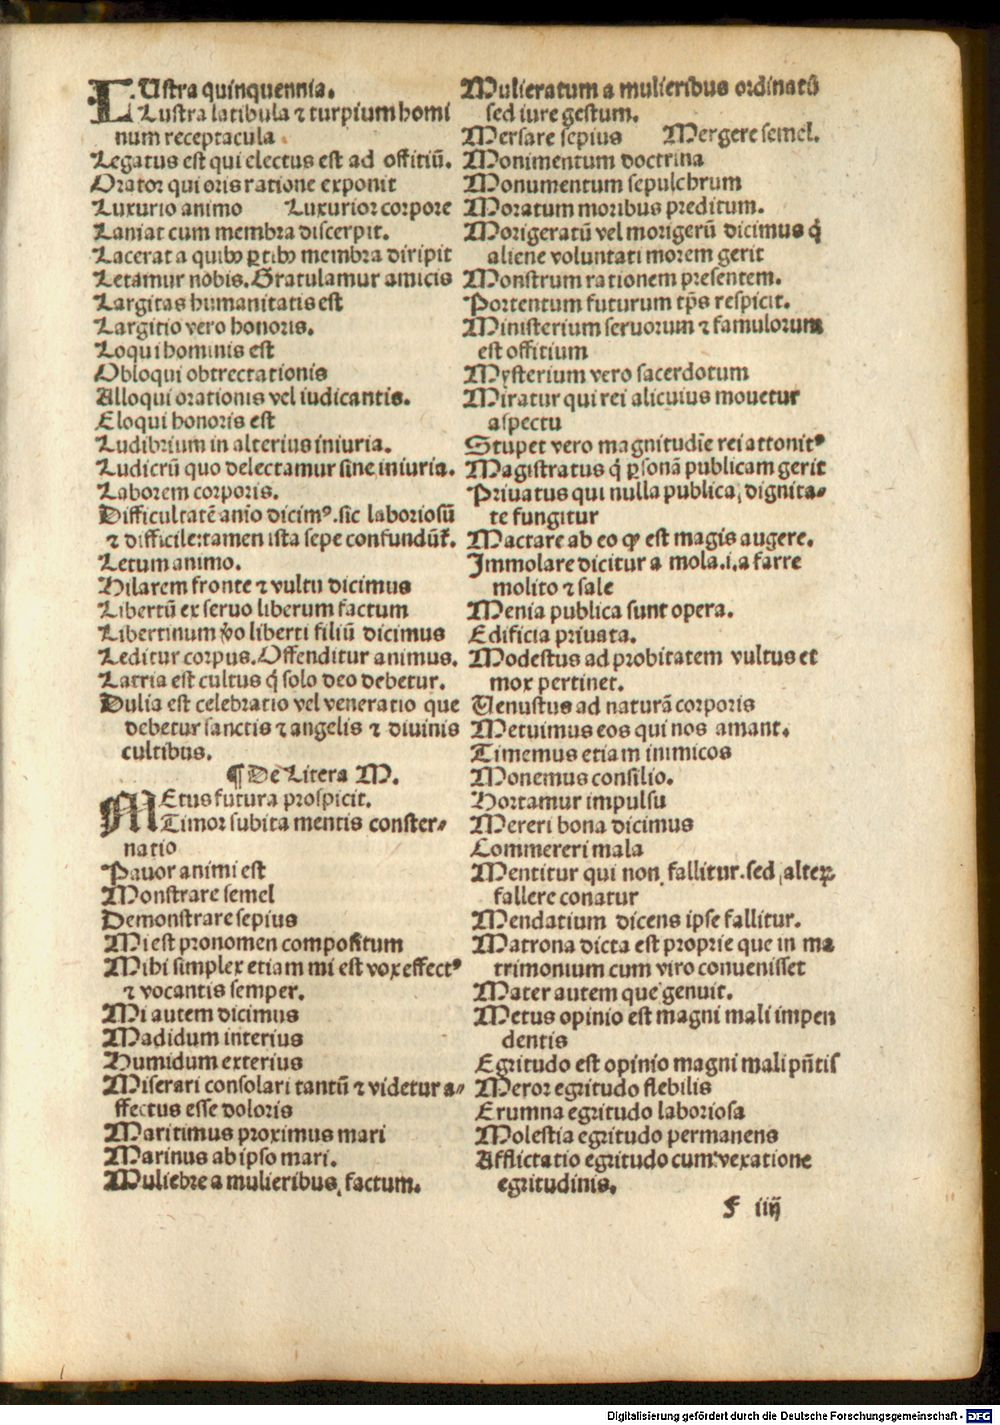 LUstra quinquennia.
Lustra latibula ⁊ turpium homi
num receptacula
Legatus est qui electus est ad offitiū.
Orator qui oris ratione exponit
Luxurio animo Luxurior corpore
Laniat cum membra discerpit.
Lacerat a quibꝰ ꝑtibꝰ membra diripit
Letamur nobis. Gratulamur amicis
Largitas humanitatis est
Largitio vero honoris.
Loqui hominis est
Obloqui obtrectationis
Alloqui orationis vel iudicantis.
Eloqui honoris est
Ludibrium in alterius iniuria.
Ludicrū quo delectamur sine iniuria.
Laborem corporis.
Difficultatē anio dicimꝰ. sic laboriosū
⁊ difficile: tamen ista sepe confundūt᷑.
Letum animo.
Hilarem fronte ⁊ vultu dicimus
Libertū ex seruo liberum factum
Libertinum ꝟo liberti filiū dicimus
Leditur corpus. Offenditur animus.
Latria est cultus q̇ solo deo debetur.
Dulia est celebratio vel veneratio que
debetur sanctis ⁊ angelis ⁊ diuinis
cultibus.
¶ De Litera M.
MEtus futura prospicit.
Timor subita mentis conster⸗
natio
Pauor animi est
Monstrare semel
Demonstrare sepius
Mi est pronomen compositum
Mihi simplex etiam mi est vox effectꝰ
⁊ vocantis semper.
Mi autem dicimus
Madidum interius
Humidum exterius
Miserari consolari tantū ⁊ videtur a⸗
ffectus esse doloris
Maritimus proximus mari
Marinus ab ipso mari.
Muliebre a mulieribus, factum.
Mulieratum a mulieribus ordinatū
sed iure gestum.
Mersare sepius Mergere semel.
Monimentum doctrina
Monumentum sepulchrum
Moratum moribus preditum.
Morigeratū vel morigerū dicimus q̇
aliene voluntati morem gerit
Monstrum rationem presentem.
Portentum futurum tp̄s respicit.
Ministerium seruorum ⁊ famulorum
est offitium
Mysterium vero sacerdotum
Miratur qui rei alicuius mouetur
aspectu
Stupet vero magnitudīe rei attonitꝰ
Magistratus q̇ ꝑsonā publicam gerit
Priuatus qui nulla publica, dignita⸗
te fungitur
Mactare ab eo ꝙ est magis augere.
Immolare dicitur a mola .i. a farre
molito ⁊ sale
Menia publica sunt opera.
Edificia priuata.
Modestus ad probitatem vultus et
mox pertinet.
Uenustus ad naturā corporis
Metuimus eos qui nos amant.
Timemus etiam inimicos
Monemus consilio.
Hortamur impulsu
Mereri bona dicimus
Commereri mala
Mentitur qui non fallitur. sed alteꝝ
fallere conatur
Mendatium dicens ipse fallitur.
Matrona dicta est proprie que in ma
trimonium cum viro conuenisset
Mater autem que genuit.
Metus opinio est magni mali impen
dentis
Egritudo est opinio magni mali pn̄tis
Meror egritudo flebilis
Erumna egritudo laboriosa
Molestia egritudo permanens
Afflictatio egritudo cum vexatione
egritudinis.
f iiij
Digitalisierung gefördert durch die Deutsche Forschungsgemeinschaft - DFG